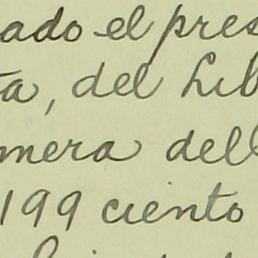 ado el pres
ta, del Lib
mera dell
199 ciento